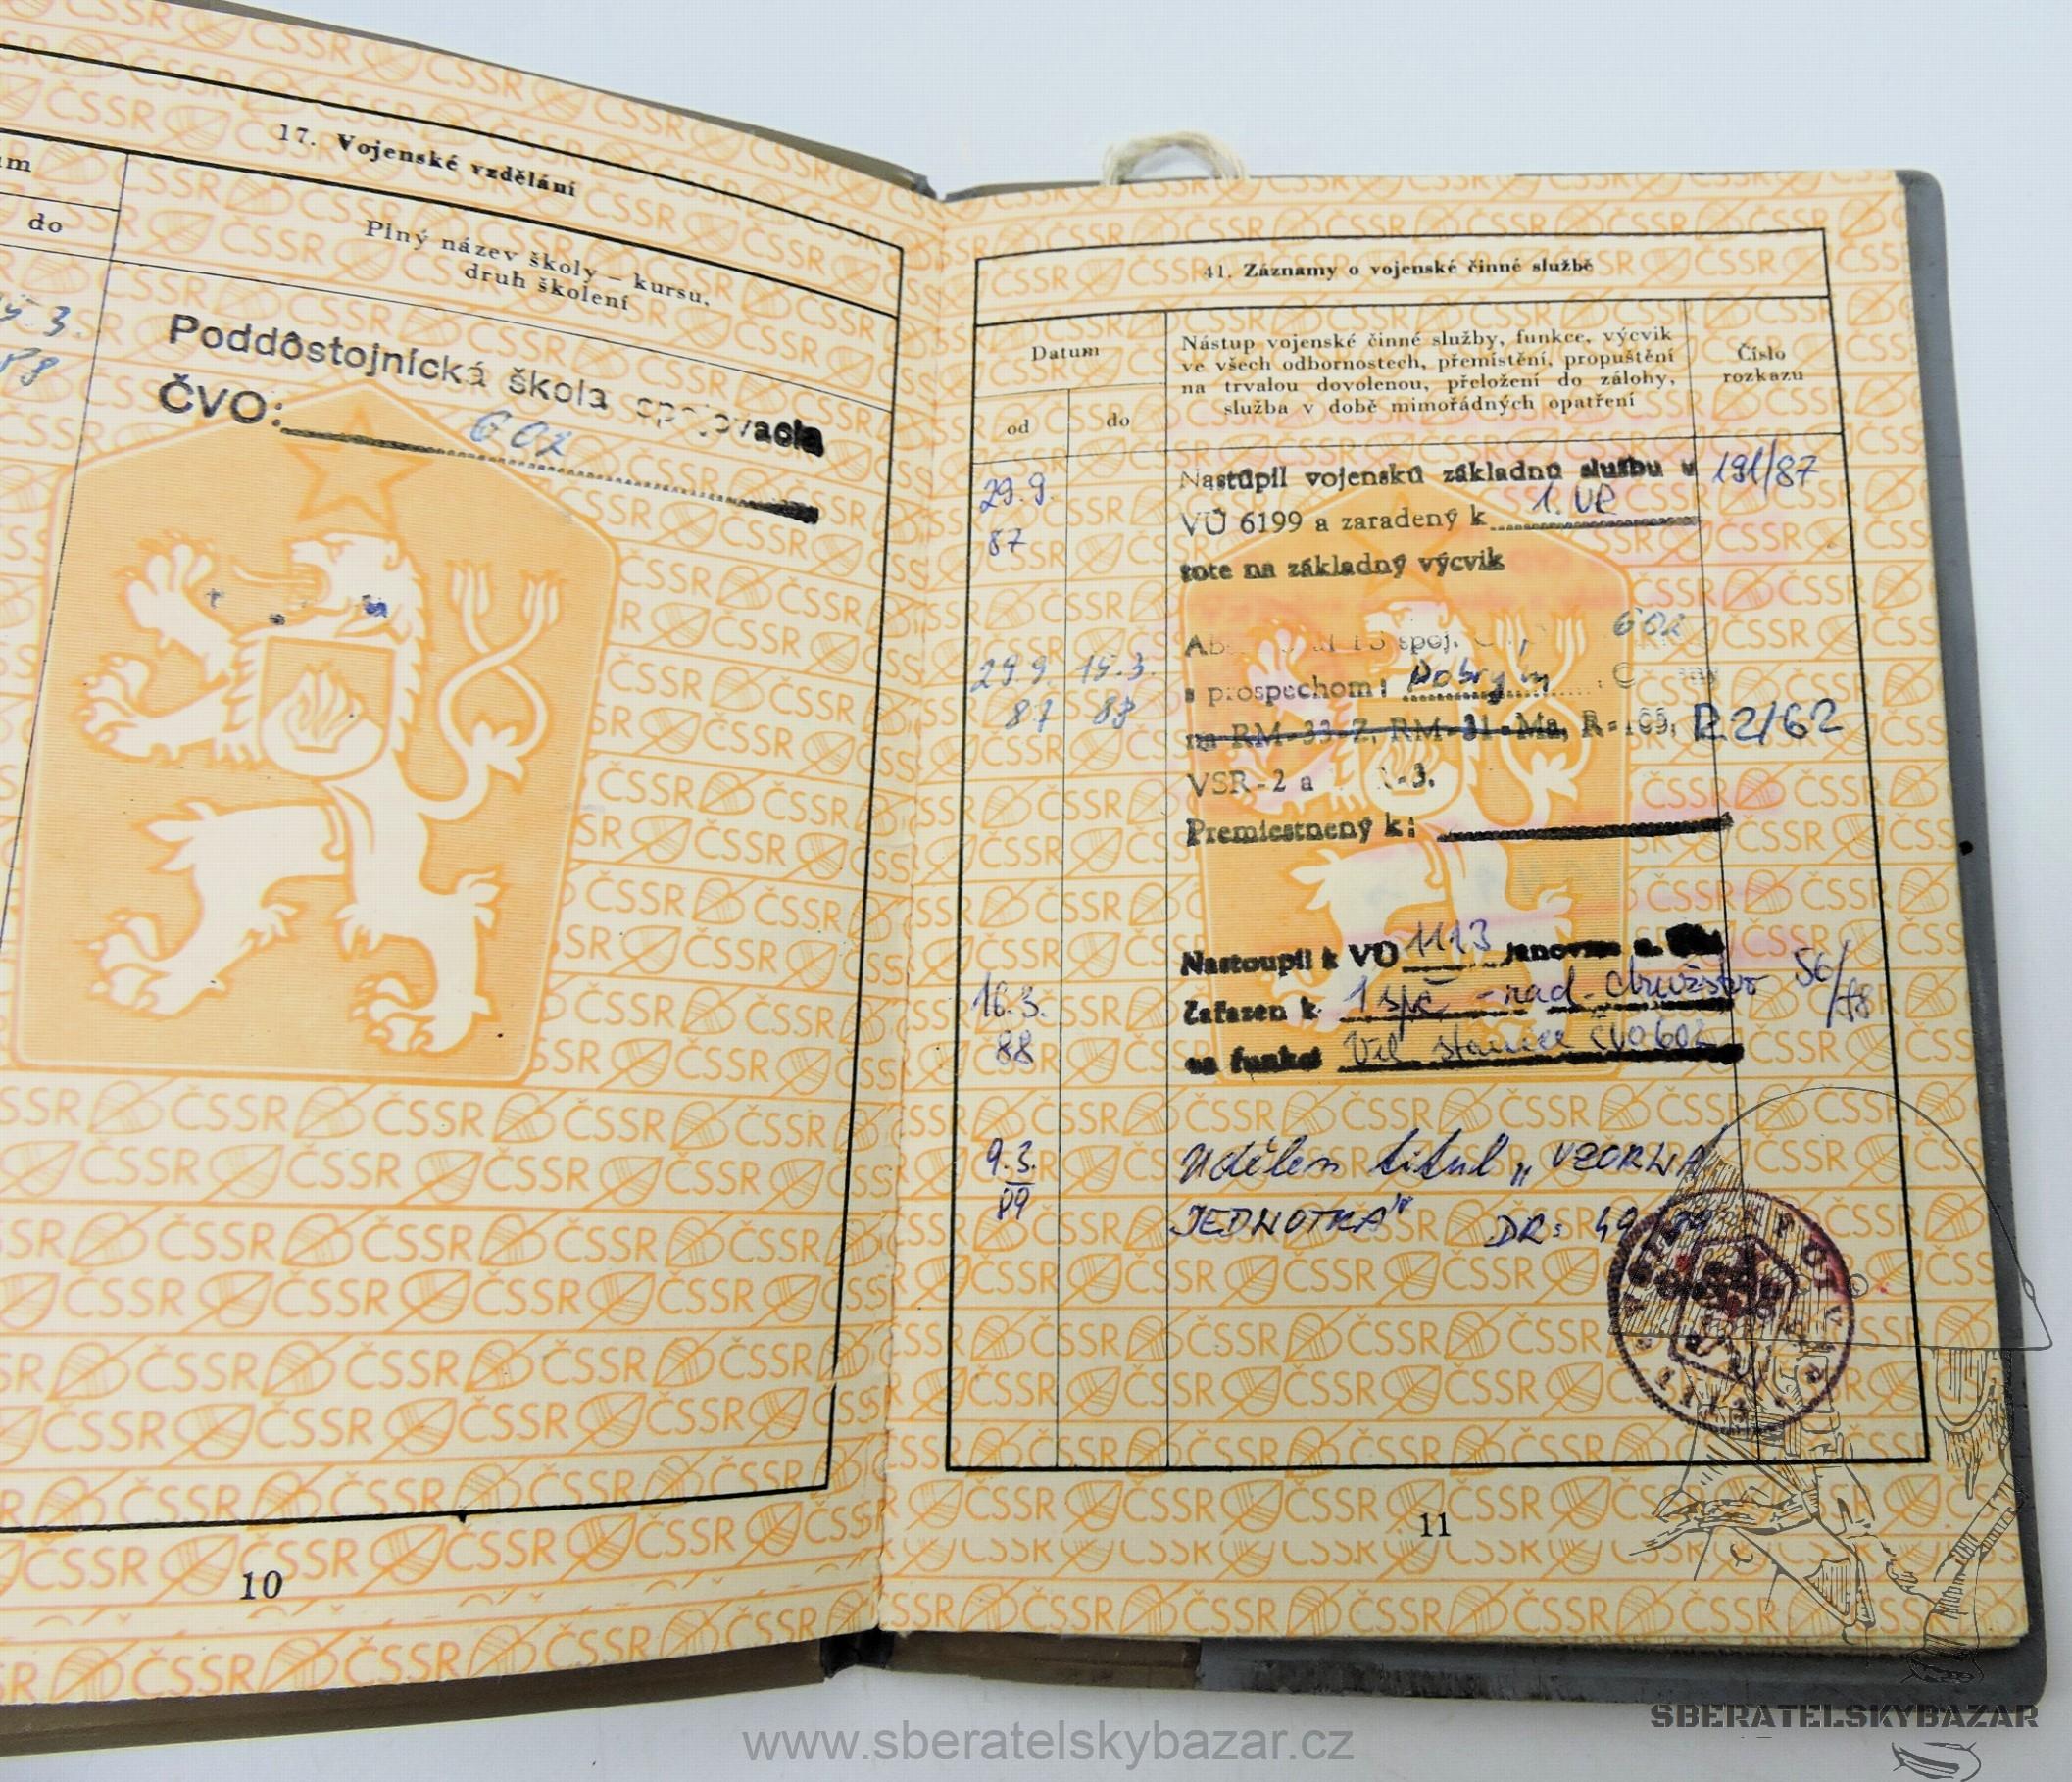 17. Vojenské vzdělání
do
Plný název školy – kursu,
druh školení
3.
Poddôstojnícká škola spojovacia
ČVO: 602
10
41. Záznamy o vojenské činné službě
Datum
od
do
Nástup vojenské činné služby, funkce, výcvik
ve všech odbornostech, přemístění, propuštění
na trvalou dovolenou, přeložení do zálohy,
služba v době mimořádných opatření
Číslo
rozkazu
29.9. Nastúpil vojenskú základnú službu v 191/87
87 VÚ 6199 a zaradený k 1. VR
tote na základný výcvik
spoj. 602
29.9. 15.3. s prospechom: Dobrým
87 88 na RM-33-Z, RM-31-Ma, R-109, R2/62
VSR-2 a -3.
Premiestnený k:
Nastoupil k VÚ 1113
16.3. Zařazen k 1 spč - rad. družstvo 56/
88 na funkci Vel. stanice ČVO 602
9.3. Udělen titul „VZORNÁ
89 JEDNOTKA" DR: 49/89
11
SBERATELSKYBAZAR
www.sberatelskybazar.cz